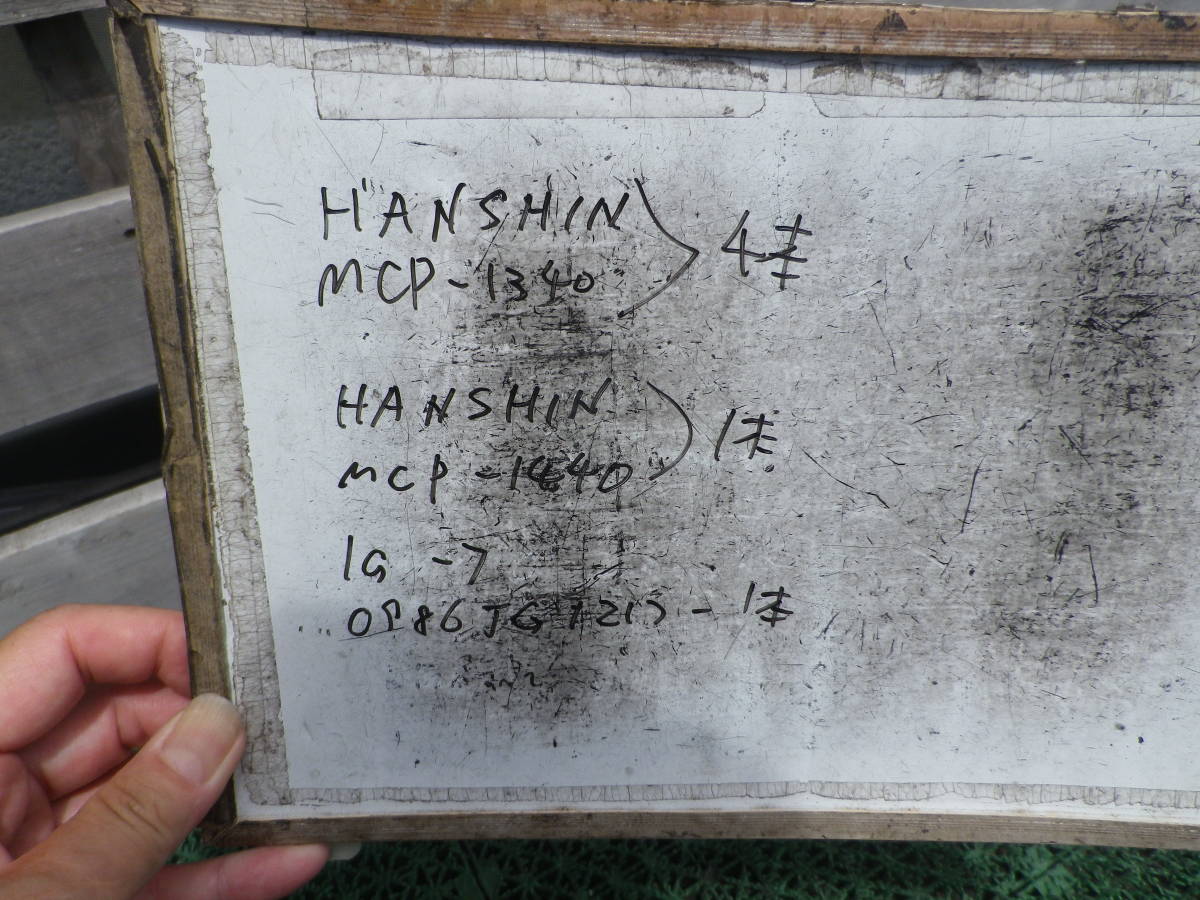 HANSHIN
MCP-1340 4本
HANSHIN
MCP-1440 1本
IG -7
JG 7217 - 1本